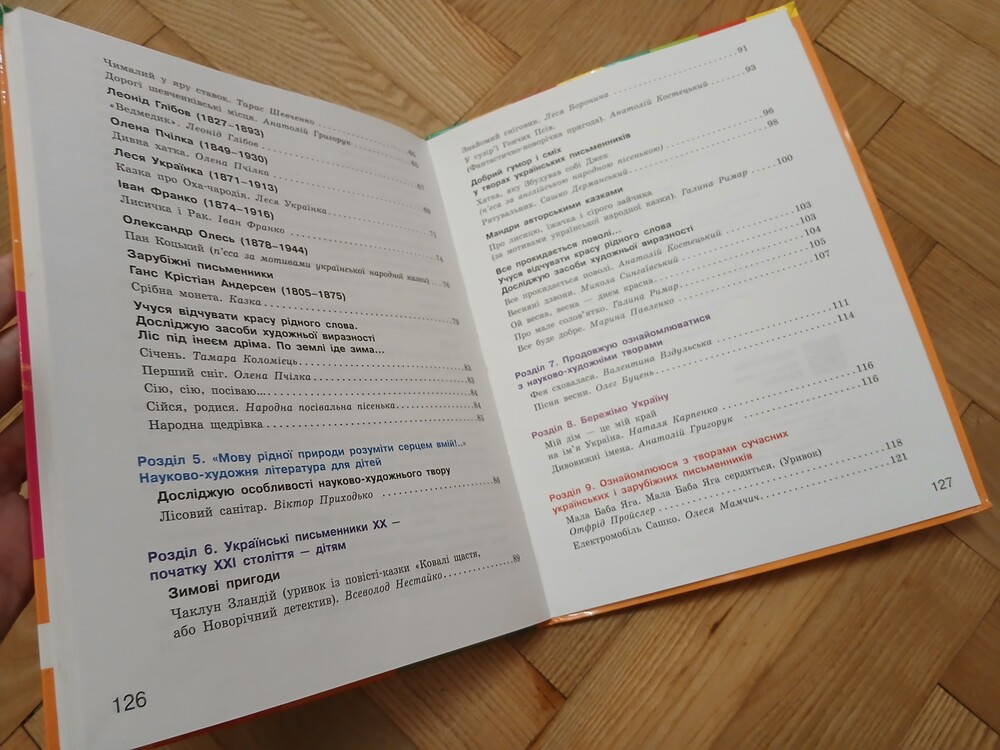 Чималий у яру ставок. Тарас Шевченко
Дорогі шевченківські місця. Анатолій Григорук
Леонід Глібов (1827–1893)
«Ведмедик». Леонід Глібов
Олена Пчілка (1849–1930)
Дивна хатка. Олена Пчілка
Леся Українка (1871–1913)
Казка про Оха-чародія. Леся Українка
Іван Франко (1874–1916)
Лисичка і Рак. Іван Франко 71
Олександр Олесь (1878–1944)
Пан Коцький (п'єса за мотивами української народної казки) 74
Зарубіжні письменники
Ганс Крістіан Андерсен (1805–1875)
Срібна монета. Казка
Учуся відчувати красу рідного слова.
Досліджую засоби художньої виразності
Ліс під інеєм дріма. По землі іде зима...
Січень. Тамара Коломієць 83
Перший сніг. Олена Пчілка 83
Сію, сію, посіваю... 84
Сійся, родися. Народна посівальна пісенька 84
Народна щедрівка 85
Розділ 5. «Мову рідної природи розуміти серцем вмій!..»
Науково-художня література для дітей
Досліджую особливості науково-художнього твору
Лісовий санітар. Віктор Приходько 86
Розділ 6. Українські письменники XX —
початку XXI століття — дітям
Зимові пригоди
Чаклун Зландій (уривок із повісті-казки «Ковалі щастя,
або Новорічний детектив). Всеволод Нестайко 89
126
Знайомий сніговик. Леся Воронина 91
У сузір'ї Гончих Псів.
(Фантастично-новорічна пригода). Анатолій Костецький 93
Добрий гумор і сміх
у творах українських письменників
Хатка, яку збудував собі Джек
(п'єса за англійською народною пісенькою) 96
Рятувальник. Сашко Дерманський 98
Мандри авторськими казками
Про лисицю, їжачка і сірого зайчика
(за мотивами української народної казки). Галина Римар 100
Все прокидається поволі...
Учуся відчувати красу рідного слова
Досліджую засоби художньої виразності
Все прокидається поволі. Анатолій Костецький 103
Весняні дзвони. Микола Сингаївський 103
Ой весна, весна — днем красна 104
Про мале солов'ятко. Галина Римар 105
Все буде добре. Марина Павленко 107
Розділ 7. Продовжую ознайомлюватися
з науково-художніми творами
Фея сховалася. Валентина Вздульська 111
Пісня весни. Олег Буцень 114
Розділ 8. Бережімо Україну
Мій дім — це мій край
на ім'я Україна. Наталя Карпенко 116
Дивовижні імена. Анатолій Григорук 116
Розділ 9. Ознайомлююся з творами сучасних
українських і зарубіжних письменників
Мала Баба Яга. Мала Баба Яга сердиться. (Уривок)
Отфрід Пройслер 118
Електромобіль Сашко. Олеся Мамчич 121
127